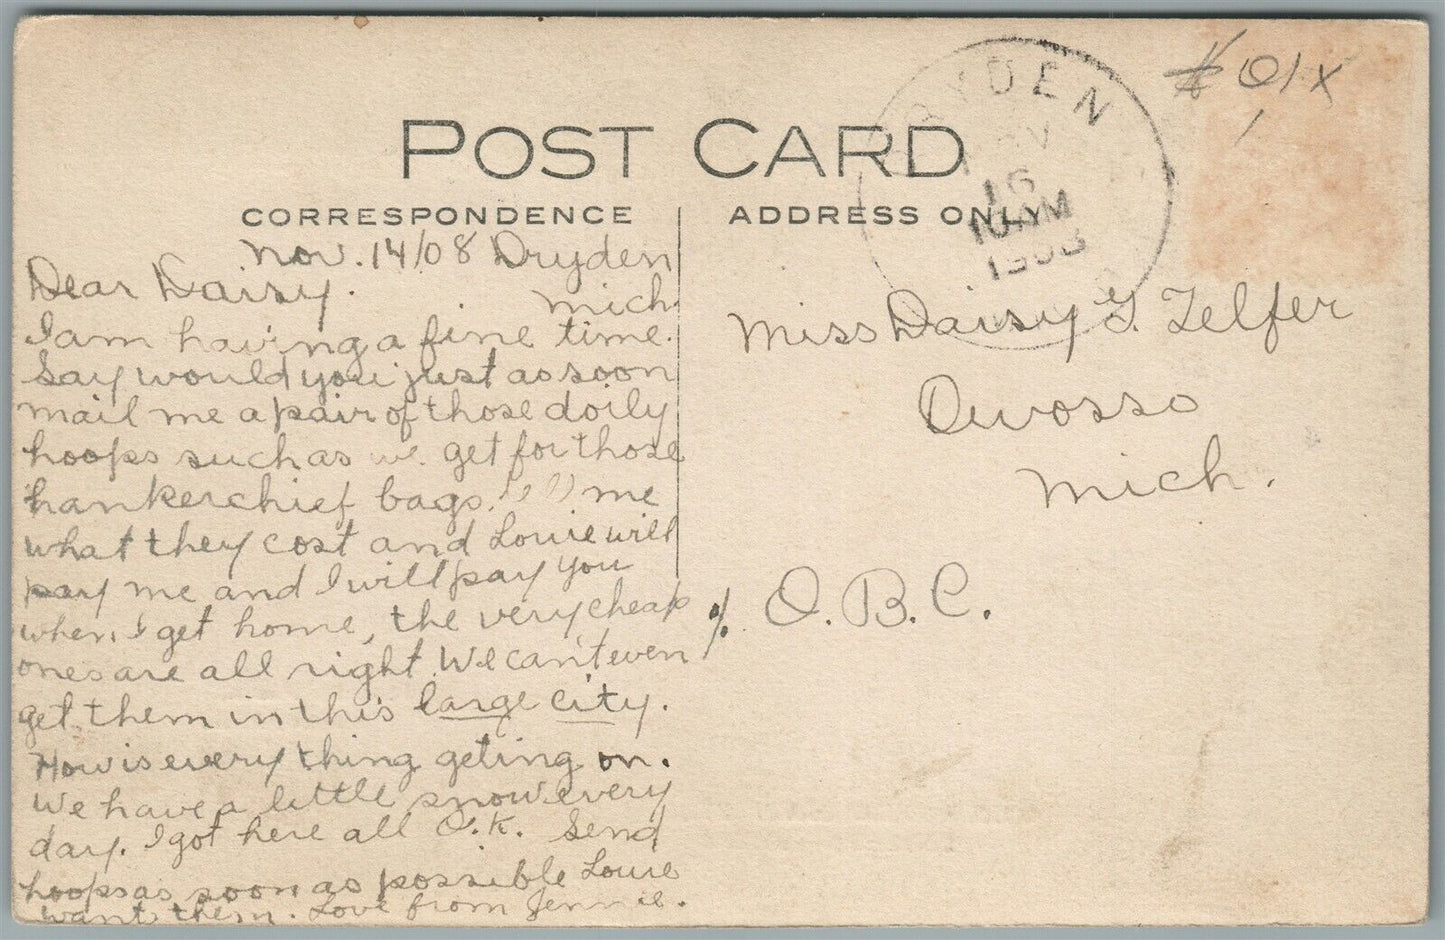 POST CARD
CORRESPONDENCE
ADDRESS ONLY
DRYDEN
NOV
16
10 AM
1908
# 01x
Nov. 14/08 Dryden
Mich.
Dear Daisy.
I am having a fine time.
Say would you just as soon
mail me a pair of those doily
hoops such as we get for those
hankerchief bags. me
what they cost and Louie will
pay me and I will pay you
when I get home, the very cheap
ones are all right. We can't even
get them in this large city.
How is every thing geting on.
We have a little snow every
day. I got here all O.K. Send
hoops as soon as possible Louie
wants them. Love from Jennie.
Miss Daisy G. Telfer
Owosso
Mich.
% O.B.C.